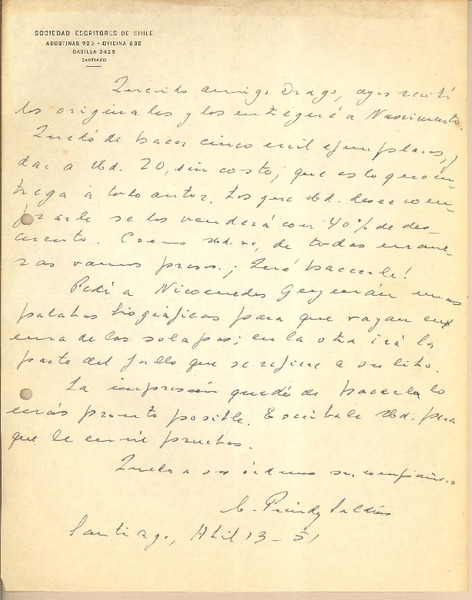 SOCIEDAD ESCRITORES DE CHILE
AGUSTINAS 925 - OFICINA 630
CASILLA 3429
SANTIAGO
Querido amigo Drago, ayer recibí
los originales y los entregué a Nascimento.
Quedó de hacer cinco mil ejemplares, y
dar a Ud. 20, sin costo; que es lo que en-
trega a todo autor. Los que Ud. desee com-
prarle se los venderá con 40% de des-
cuento. Como Ud. ve, de todas mane-
ras vamos presos. ¡Qué hacerle!
Pedí a Nicomedes Guzmán unas
palabras biográficas para que vayan en
una de las solapas; en la otra irá la
parte del fallo que se refiere a su libro.
La impresión quedó de hacerla lo
más pronto posible. Escríbale Ud. para
que le envíe pruebas.
Queda a sus órdenes su compañero
Santiago, Abril 13 - 51